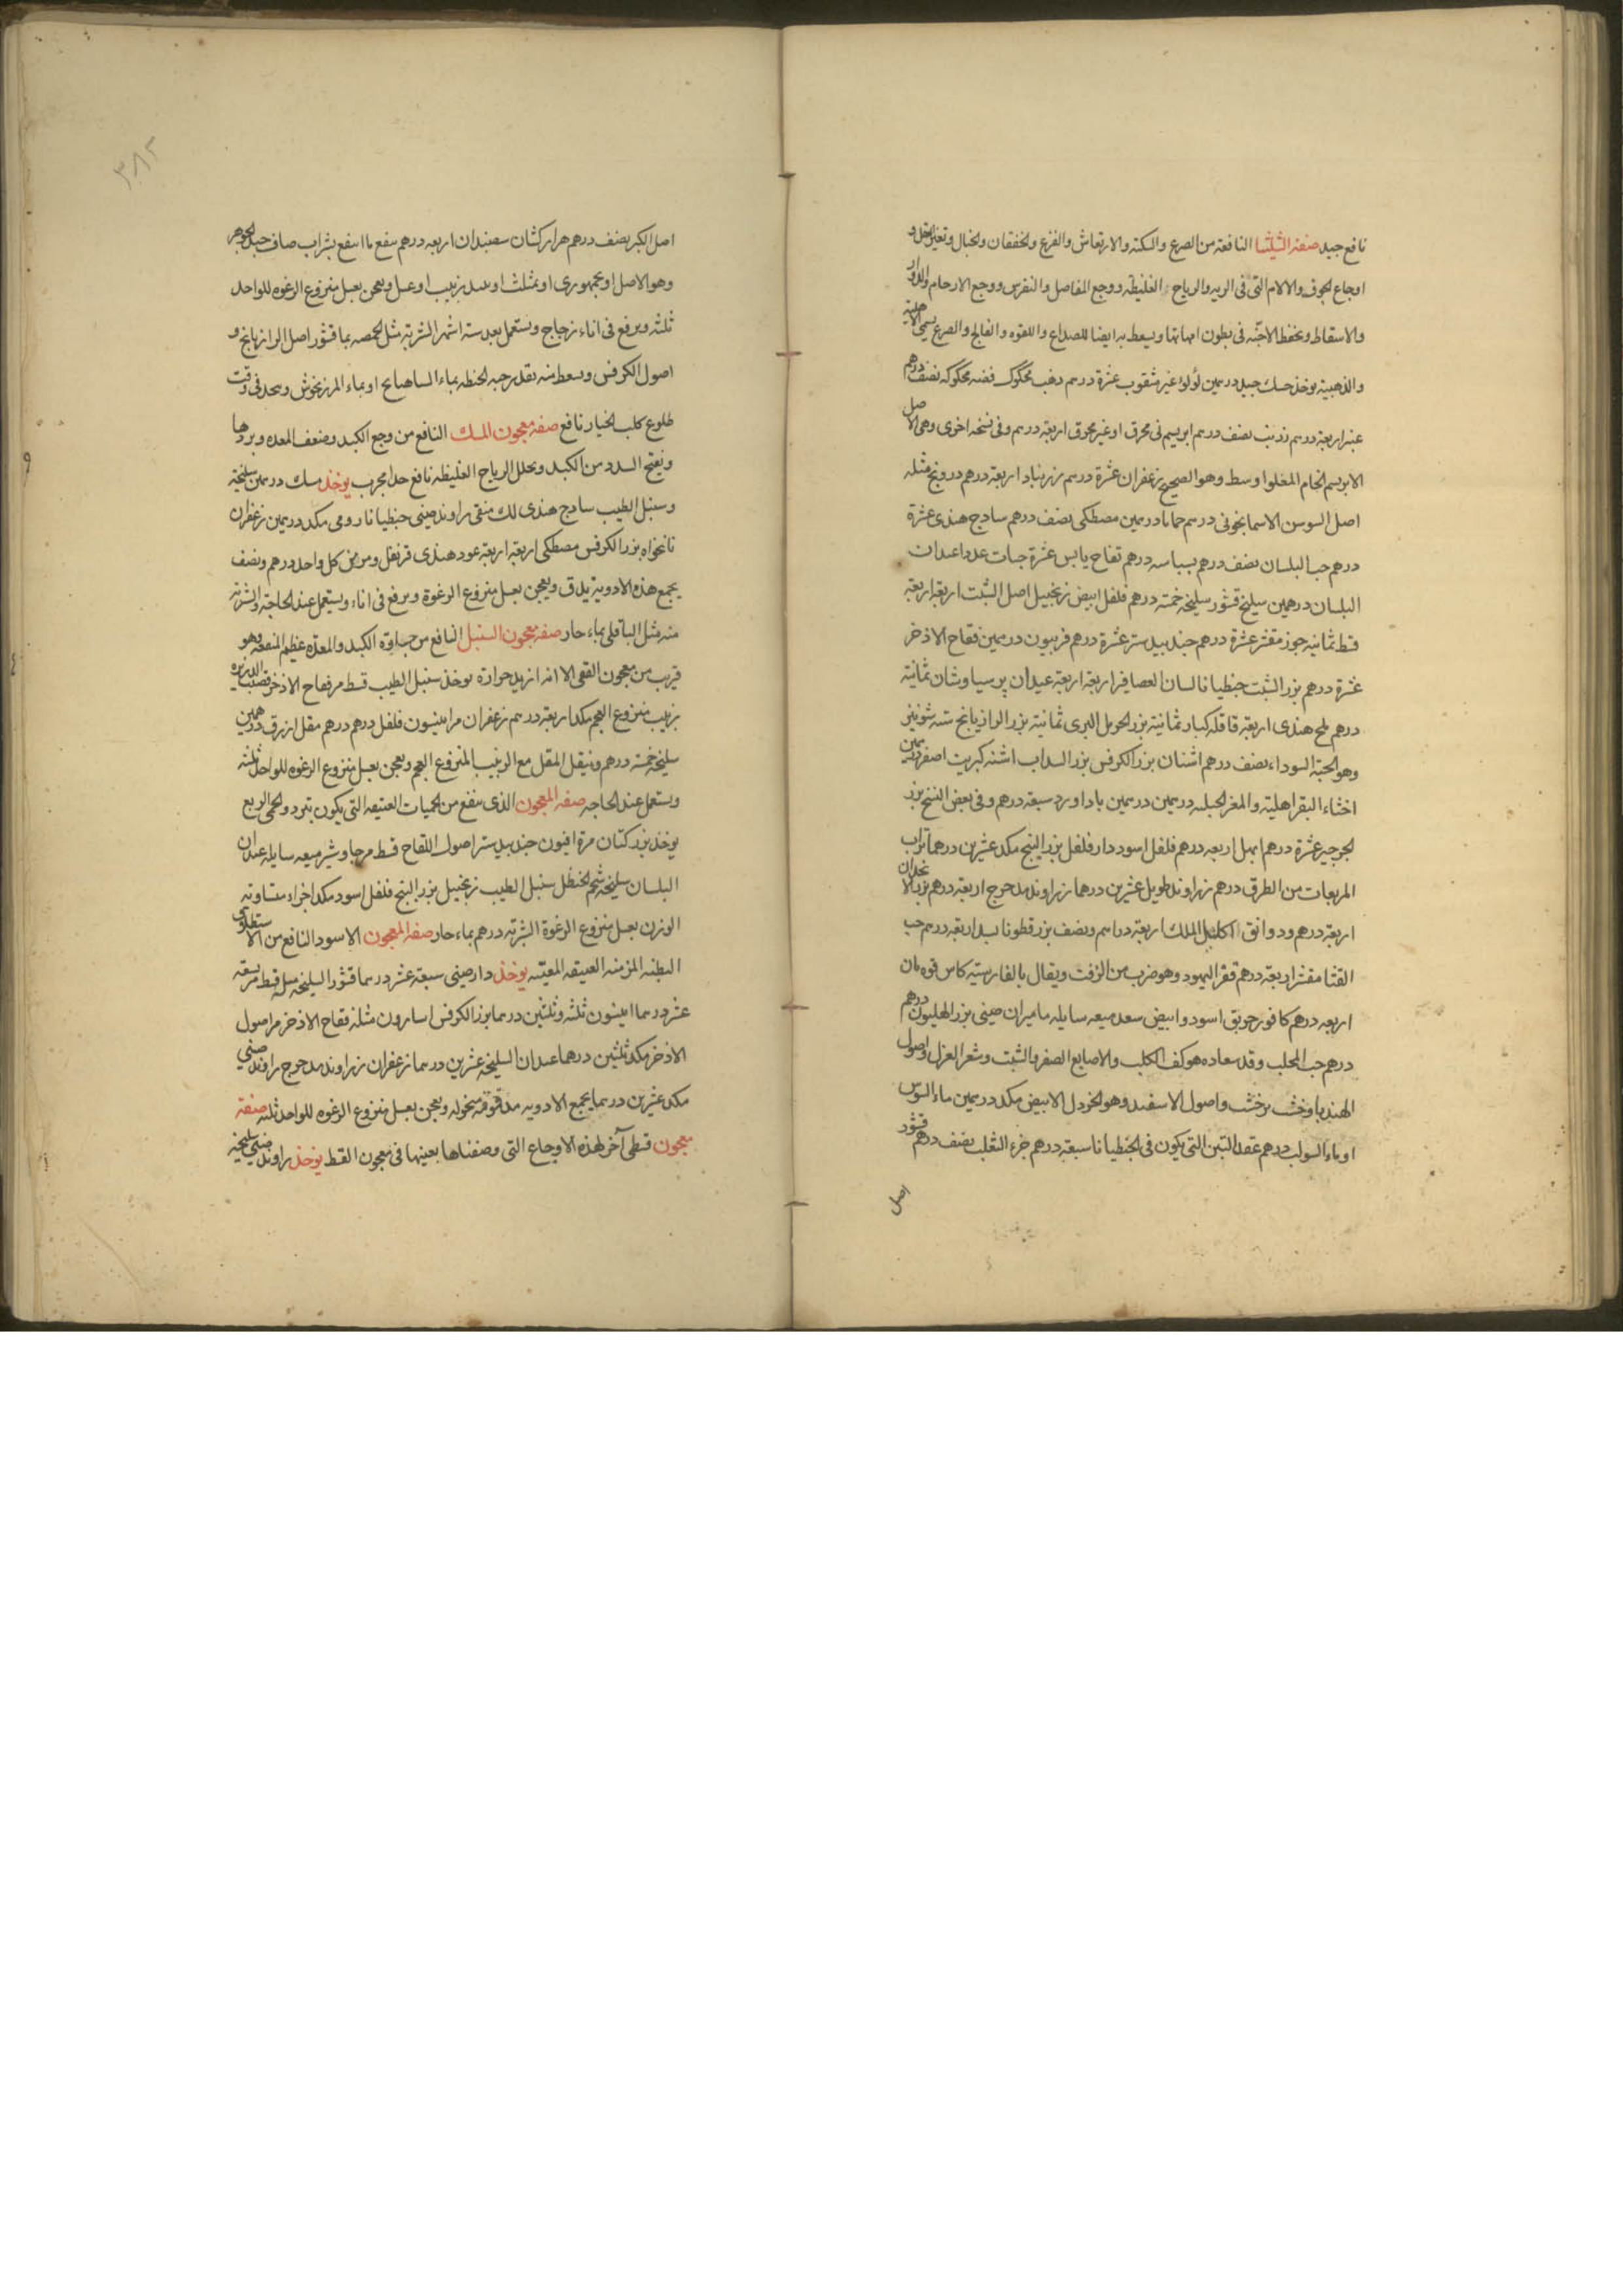 نافع جيد صفة الشليثا النافعة من الصرع والسكته والارتعاش والفزع والخفقان والخبال وتغير العقل و
اوجاع الجوف والالام التى فى الريه والرياح الغليظه ووجع المفاصل والنقرس ووجع الارحام والادرار
والاسقاط ويحفظ الاجنّه فى بطون امهاتها ويسعط به ايضا للصداع واللقوه والفالج والصرع يسمى الالهية
والذهبية يوخذ مسك جيد درهمين لؤلؤ غير مثقوب عشرة درهم ذهب محكوك فضه محكوكه نصف درهم
عنبر اربعة درهم نصف درهم ابريسم نى محرق او غير محرق اربعة درهم وفى نسخه اخرى وهى الاصل
الابريسم الخام المغلوا وسط وهو الصحيح زعفران عشرة درهم زرنباد اربعة درهم درونج مثله
اصل السوسن الاسمانجونى درهم حماما درهمين مصطكى نصف درهم سادج هندى عشرة
درهم حب البلسان نصف درهم بسباسه درهم تفاح يابس عشرة حبات عددا عيدان
البلسان درهمين سليخ قشور سليخه خمسة درهم فلفل ابيض زنجبيل اصل الشبت اربعة اربعة
قسط ثمانيه جوز مقشر عشرة درهم جندبيدستر عشرة درهم فربيون درهمين فقاح الاذخر
عشرة درهم بزر الشبت جنطيانا لسان العصافير اربعة اربعة عيدان برسياوشان ثمانية
درهم ملح هندى اربعة قاقله كبار ثمانية بزر الحرمل البرى ثمانية بزر الرازيانج ستة شونيز
وهو الحبة السوداء نصف درهم اشنان بزر الكرفس بزر السداب اشنه كبريت اصفر درهمين
اخثاء البقر اهلية والمغر الجبليه درهمين درهمين باداورد سبعة درهم وفى بعض النسخ بزر
الجرجير عشرة درهم ابهل اربعه درهم فلفل اسود دارفلفل بزر البنج مكد عشرين درهما تراب
المربعات من الطرق درهم زراوند طويل عشرين درهما زراوند مدحرج اربعة درهم بزر الانجدان
اربعة درهم ودوانق اكليل الملك اربعة دراهم ونصف بزر قطونا اربعة درهم حب
القثا مقشر اربعة درهم قفر اليهود وهو ضرب من الزفت ويقال بالفارسيّه
اربعه درهم كافور خربق اسود وابيض سعد ميعه سايله ماميران صينى بزر الهليون درهم
درهم حب المحلب وقد سعاده هو كف الكلب والاصابع الصفر والشبت وشعر الغزل واصول
الهندبا وخشب واصول الاسفند وهو الخردل الابيض مكد درهمين ماء السوس
درهم عقد التبن التى يكون فى الحنطيانا سبعة درهم خرء الثعلب نصف درهم قشور
اصل
٣٨٢
اصل الكبر نصف درهم هزاركشان سعبندان اربعه درهم ينقع ما انتفع بشراب صاف جيد الجوهر
وهو الاصل او بجمهورى او بمثلث او بنبيذ زبيب او عسل ويعجن بعسل منزوع الرغوه للواحد
ثلثه ويرفع فى اناء زجاج ويستعمل بعد سته اشهر الشربه مثل الحمصه بماء قشور اصل الرازيانج و
اصول الكرفس ويسعط منه بقدر حبه الحنطه بماء او بماء المرزنجوش ويجد فى وقت
طلوع كلب الخيار نافع صفه معجون المسك النافع من وجع الكبد وضعف المعده وبردها
ويفتح السدد من الكبد ويحلل الرياح الغليظه نافع جدا مجرب يوخذ مسك درهمين سليخة
وسنبل الطيب سادج هندى لك منقى راوند صينى جنطيانا رومى مكد درهمين زعفران
نانخواه بزر الكرفس مصطكى اربعة اربعة عود هندى قرنفل ومر من كل واحد درهم ونصف
يجمع هذه الادوية يدق ويعجن بعسل منزوع الرغوة ويرفع فى اناء ويستعمل عند الحاجة والشربة
منه مثل الباقلى بماء حار صفه معجون السنبل النافع من جساوة الكبد والمعدة عظيم المنفعه وهو
قريب من معجون القفى الا انه ازيد حرارة يوخذ سنبل الطيب قسط مر فقاح الاذخر قصب الذريره
زبيب منزوع العجم مكد اربعة درهم زعفران مر افيسون فلفل درهم درهم مقل ازرق درهمين
سليخه خمسة درهم وينقل المقل مع الزبيب المنزوع العجم ويعجن بعسل منزوع الرغوه للواحد ثلثه
ويستعمل عند الحاجه صفه المعجون الذى ينفع من الحميات العتيقه التى يكون تبرد والحمى الربع
يوخذ بزر كتان مرة افيون جندبيدستر اصول اللقاح قسط مر جاوشير ميعه سايله عيدان
البلسان سليخه شحم الحنظل سنبل الطيب زنجبيل بزر البنج فلفل اسود مكد اجزاء متساويه
الوزن بعسل منزوع الرغوة الشربه درهم بماء حار صفه المعجون الاسود النافع من الاستطلاق
البطنه المزمنه العتيقه المعيّنه يوخذ دارصينى سبعة عشر درهما قشور السليخه مثله قسط مر تسعة
عشر درهما انيسون ثلثه وثلثين درهما بزر الكرفس اسارون مثله فقاح الاذخر مر اصول
الاذخر مكد ثلثين درهما عيدان السليخه عشرين درهما زعفران زراوند مدحرج راوند صينى
مكد عشرين درهما يجمع الادويه مدقوقه منخوله ويعجن بعسل منزوع الرغوه للواحد ثلثه صفة
معجون قسطى آخر لهذه الاوجاع التى وصفناها بعينها فى معجون القسط يوخذ راوند صينى سليخه